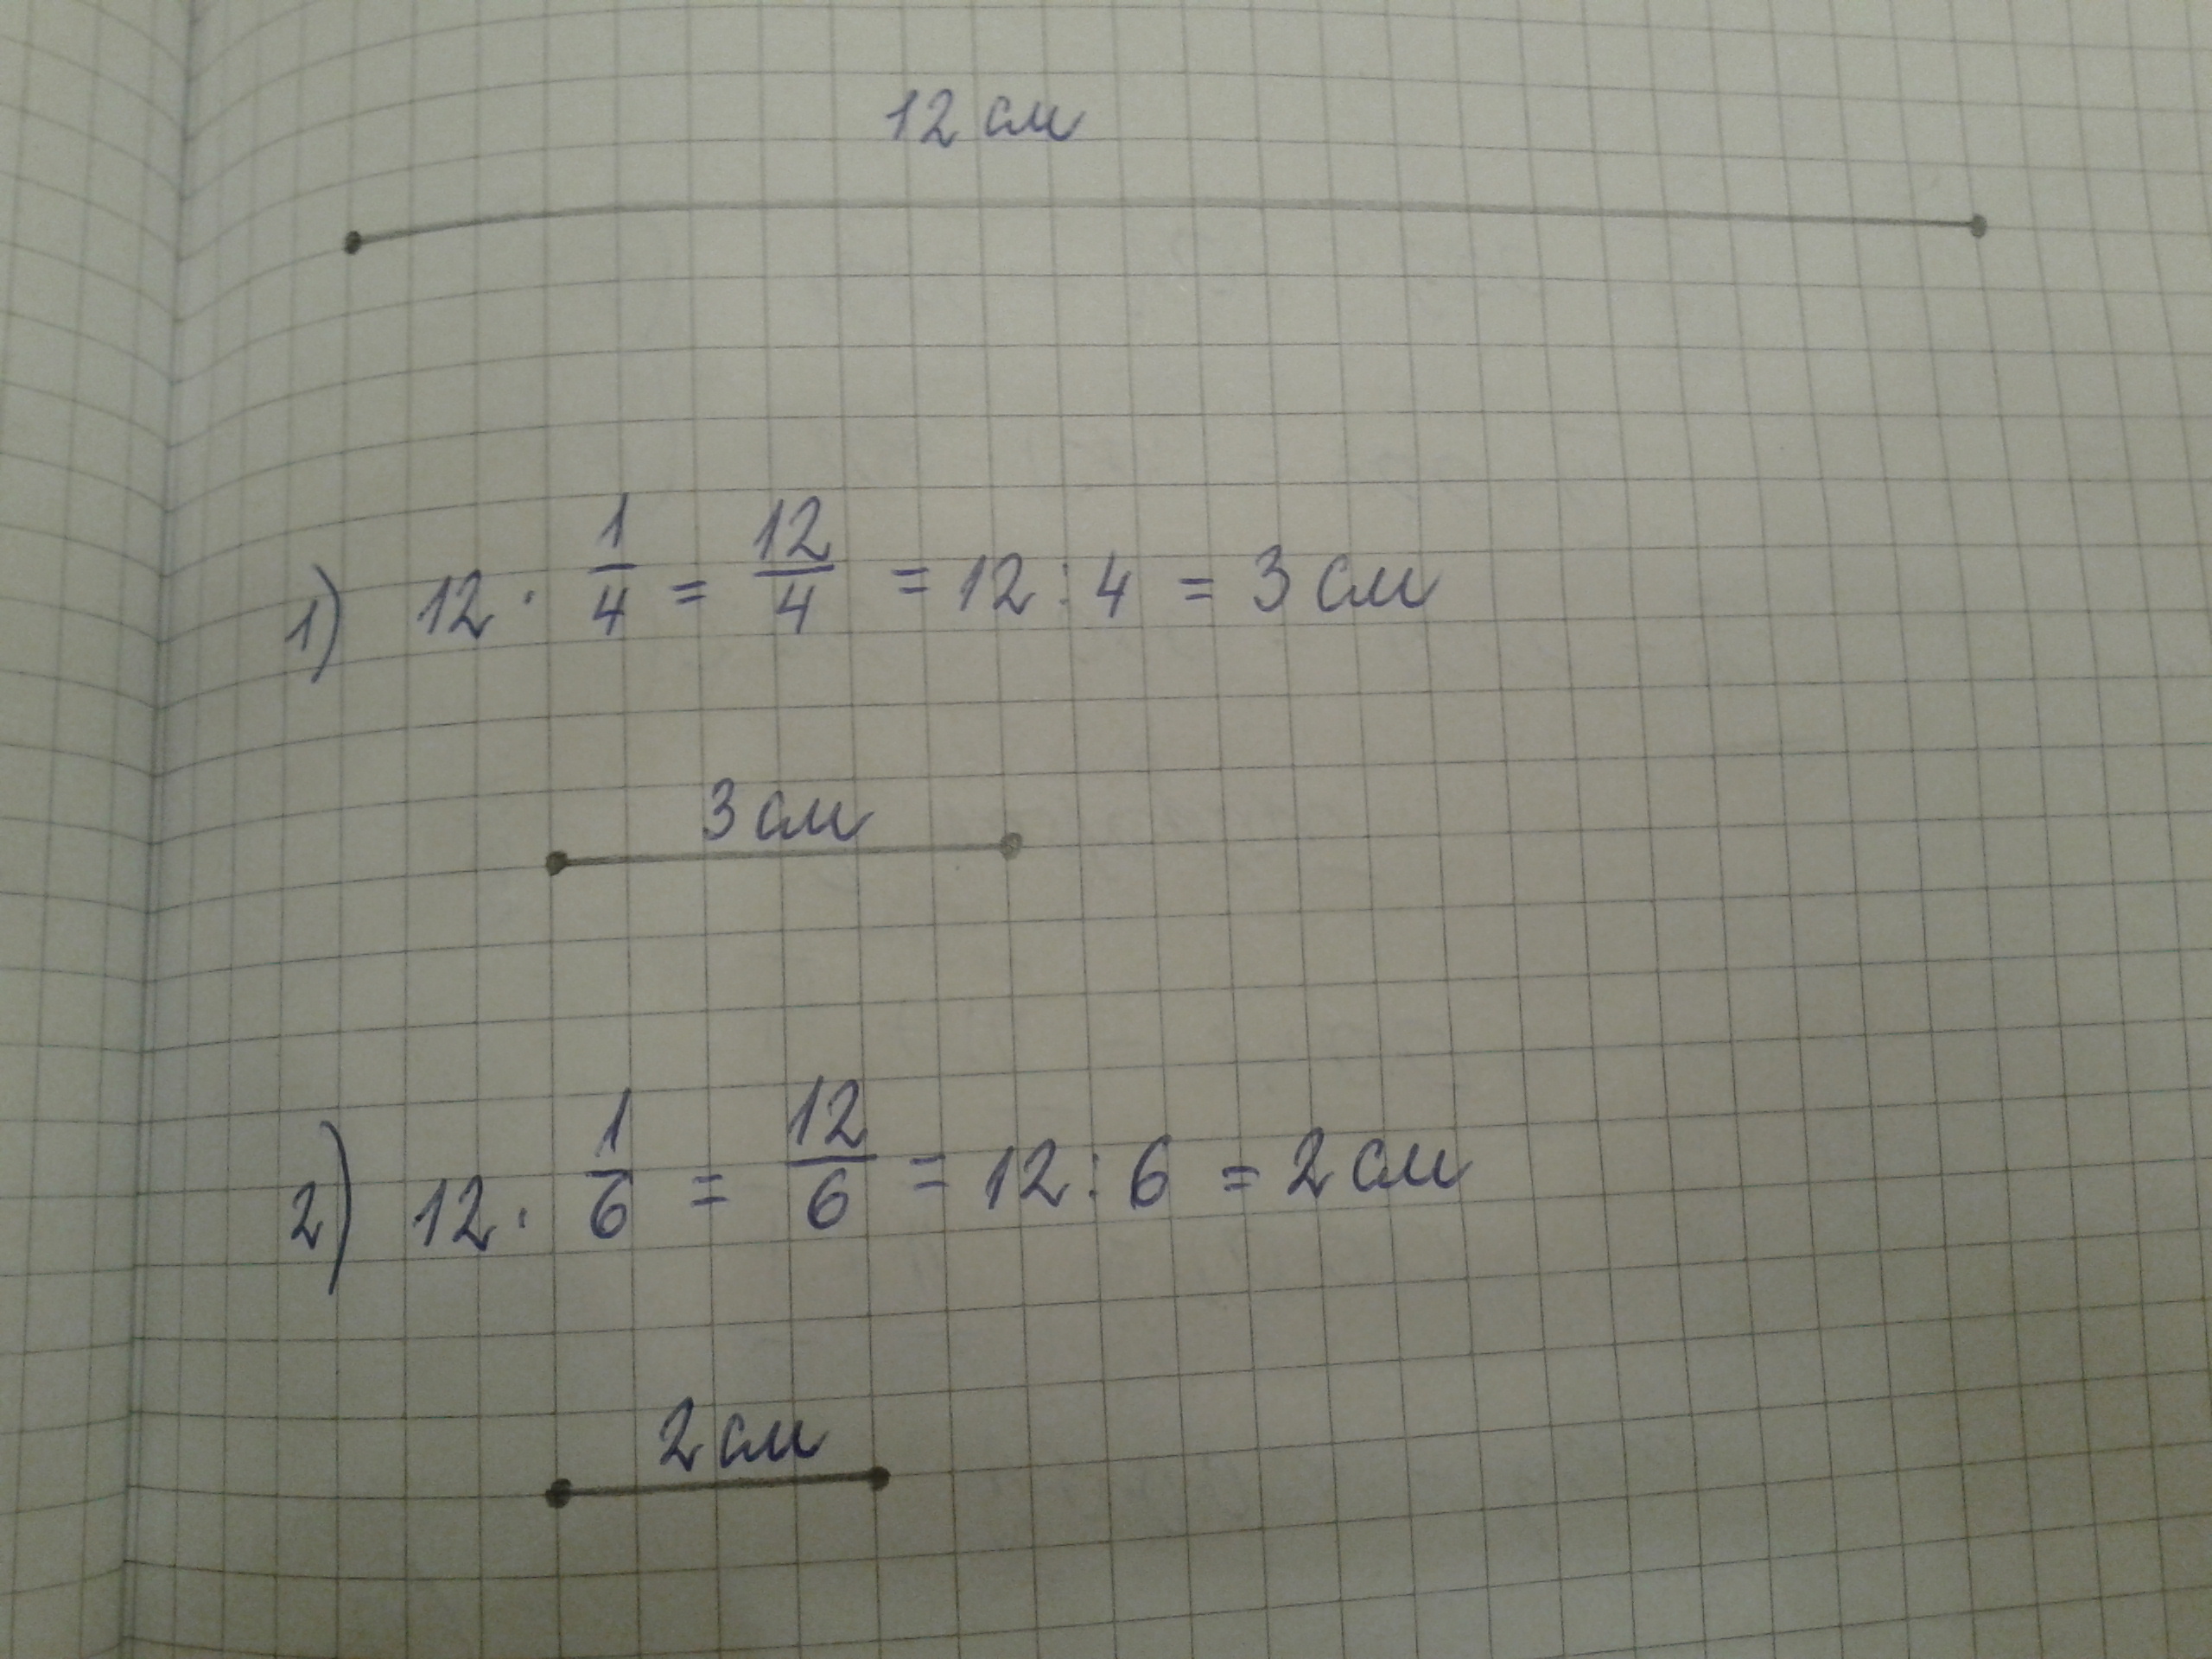 12 см
1) 12 · 1/4 = 12/4 = 12 : 4 = 3 см
3 см
2) 12 · 1/6 = 12/6 = 12 : 6 = 2 см
2 см